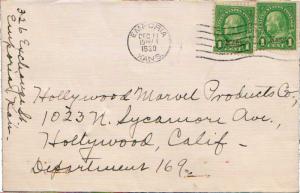 326 Exchange St.
Emporia, Kan.
EMPORIA
DEC 11
1930
KANS.
1 1
1 1
Hollywood Marvel Products Co.,
1023 N. Sycamore Ave,
Hollywood, Calif-
Department 169.